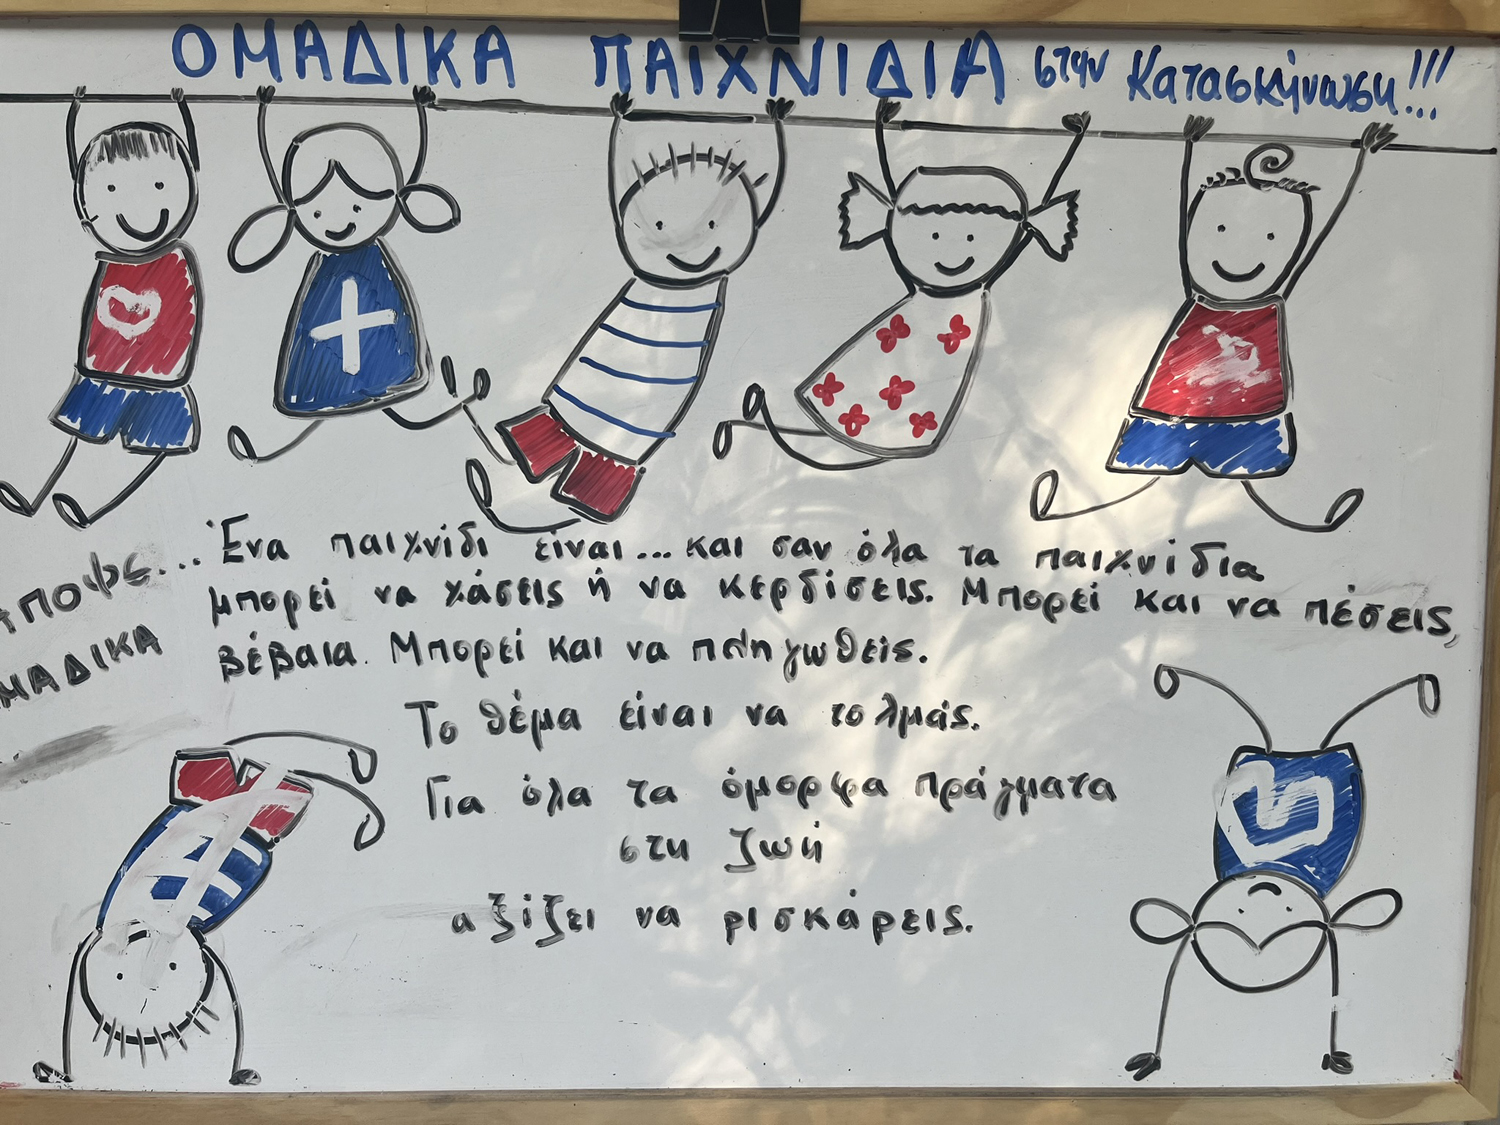 ΟΜΑΔΙΚΑ ΠΑΙΧΝΙΔΙΑ στην Κατασκήνωση!!!
Απόψε... Ένα παιχνίδι είναι... και σαν όλα τα παιχνίδια
μπορεί να χάσεις ή να κερδίσεις. Μπορεί και να πέσεις,
ΜΑΔΙΚΑ
βέβαια. Μπορεί και να πληγωθείς.
Το θέμα είναι να τολμάς.
Για όλα τα όμορφα πράγματα
στη ζωή
αξίζει να ρισκάρεις.